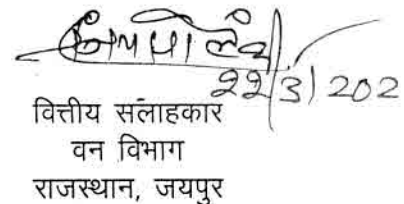 22/3/202
वित्तीय सलाहकार
वन विभाग
राजस्थान, जयपुर